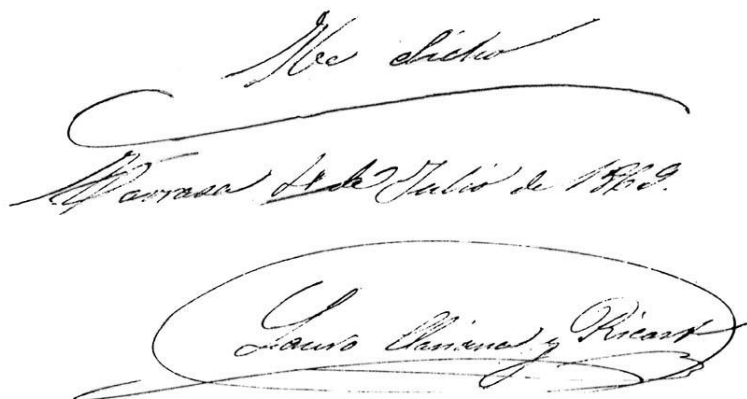 He dicho
Tarrasa de Julio de 1869.
Lauro Clariana y Ricart